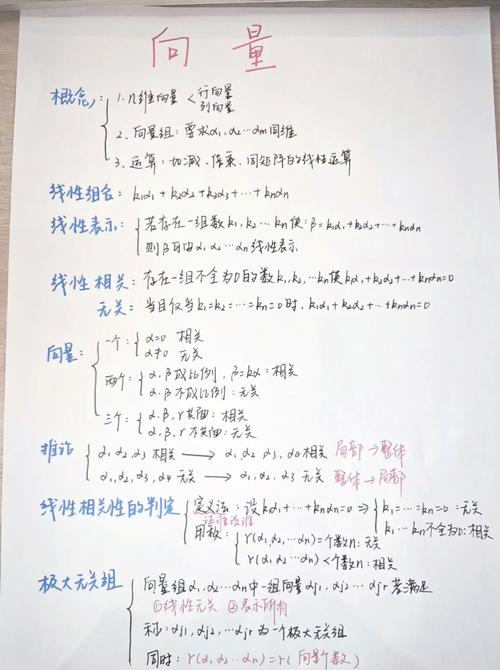 向量
概念: 1. n维向量 < 行向量
列向量
2. 向量组: 要求α1, α2 … αm同维
3. 运算: 加减、倍乘、同矩阵的线性运算
线性组合: k1α1 + k2α2 + k3α3 + … + knαn
线性表示: 若存在一组数k1, k2 … kn使: β = k1α1 + k2α2 + … + knαn
则β可由α1 α2 … αn线性表示
线性相关: 存在一组不全为0的数k1, k2, … kn使kα1 + k2α2 + … + knαn=0
无关: 当且仅当k1 = k2 = … = kn = 0时, k1α1 + k2α2 + … + knαn=0
向量: 一个: α=0 相关
α≠0 无关
两个: α, β成比例, β=kα: 相关
α, β不成比例: 无关
三个: α, β, r共面: 相关
α, β, r不共面: 无关
推论 α1, α2, α3相关 → α1, α2 α3, α4相关 局部→整体
α1, α2, α3, α4无关 → α1, α2, α3无关 整体→局部
线性相关性的判定 定义法: 设kα1 + … + knαn=0 ⇒ k1= … =kn=0: 无关
k1 … kn不全为0: 相关
用秩: r(α1, α2 … αn) = 个数n: 无关
r(α1, α2 … αn) < 个数n: 相关
极大无关组 向量组α1, α2 … αn中一组向量αj1, αj2 … αjr 若满足
①线性无关 ②表示所有
称: αj1, αj2, … αjr为一个极大无关组
同时: r(α1, α2 … αn) = r(向量个数)